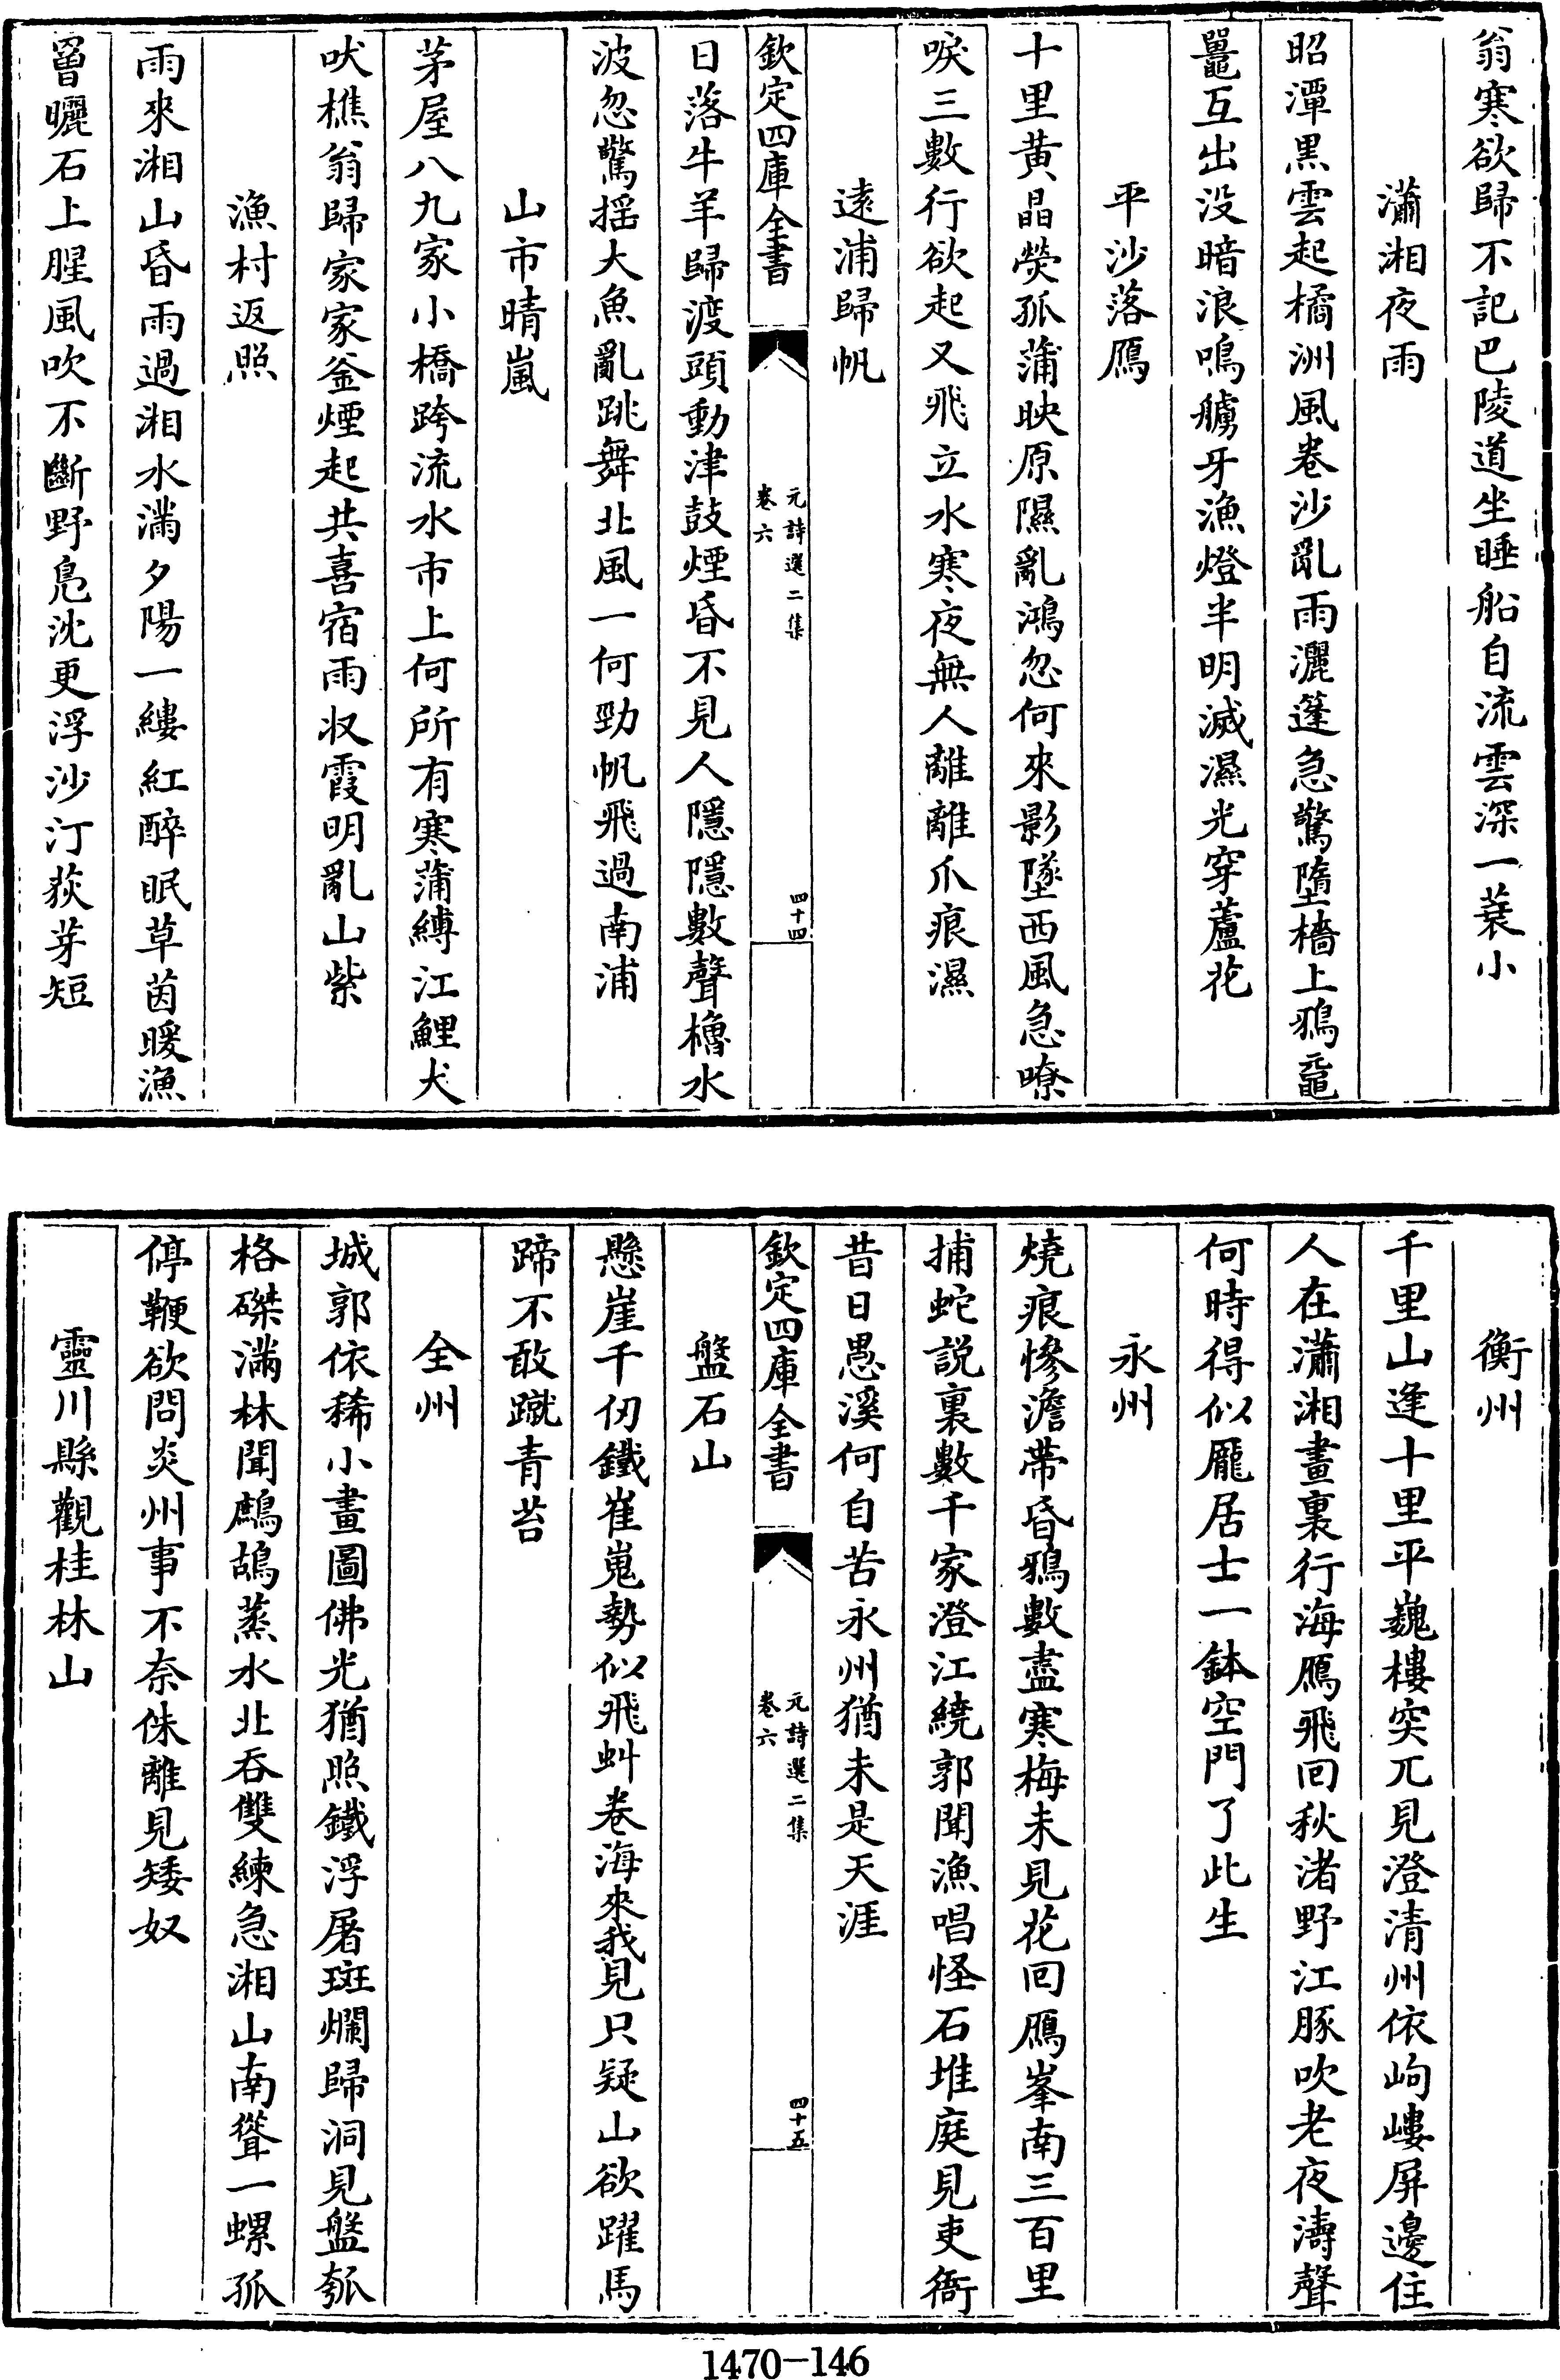 翁寒欲歸不記巴陵道坐睡船自流雲深一蓑小
瀟湘夜雨
昭潭黒雲起橘洲風卷沙亂雨灑篷急驚墮檣上鴉黿
鼉互出没暗浪鳴艣牙漁燈半明滅濕光穿蘆花
平沙落鴈
十里黄晶熒孤蒲映原隰亂鴻忽何來影墜西風急嘹
唳三數行欲起又飛立水寒夜無人離離爪痕濕
逺浦歸帆
欽定四庫全書
元詩選二集
卷六
四十四
日落牛羊歸渡頭動津鼓煙昏不見人隱隱數聲櫓水
波忽驚揺大魚亂跳舞北風一何勁帆飛過南浦
山市晴嵐
茅屋八九家小橋跨流水市上何所有寒蒲縛江鯉犬
吠樵翁歸家家釜煙起共喜宿雨収霞明亂山紫
漁村返照
雨來湘山昏雨過湘水滿夕陽一縷紅醉眠草茵暖漁
罾曬石上腥風吹不斷野鳬沈更浮沙汀荻芽短
衡州
千里山逢十里平巍樓突兀見澄清州依岣嶁屏邊住
人在瀟湘畫裏行海鴈飛回秋渚野江豚吹老夜濤聲
何時得似龎居士一鉢空門了此生
永州
燒痕慘澹帶昏鴉數盡寒梅未見花回鴈峯南三百里
捕蛇説裏數千家澄江繞郭聞漁唱怪石堆庭見吏衙
昔日愚溪何自苦永州猶未是天涯
欽定四庫全書
元詩選二集
卷六
四十五
盤石山
懸崖千仞鐵崔嵬勢似飛虯卷海來我見只疑山欲躍馬
蹄不敢蹴青苔
全州
城郭依稀小畫圖佛光猶照鐵浮屠斑斕歸洞見盤瓠
格磔滿林聞鷓鴣蒸水北吞雙練急湘山南聳一螺孤
停鞭欲問炎州事不奈侏離見矮奴
靈川縣觀桂林山
1470-146